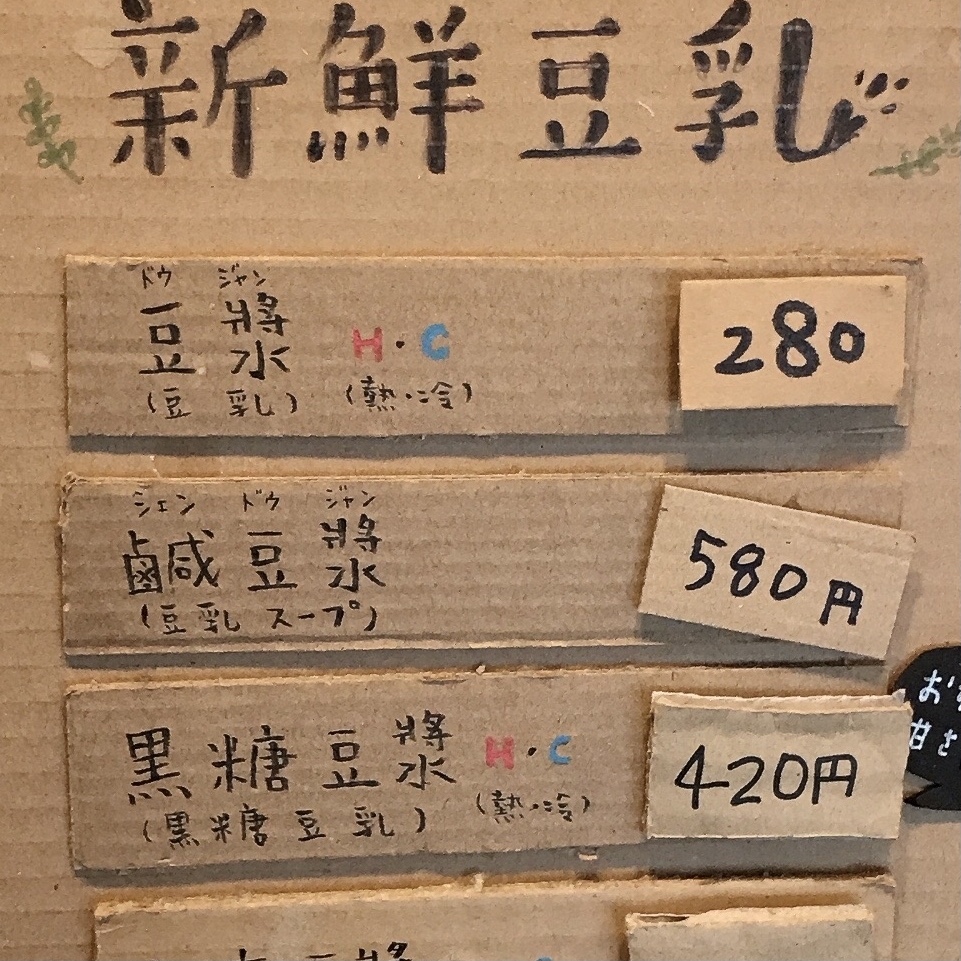 新鮮豆乳
ドゥ ジャン
豆漿 H・C 280
(豆乳) (熱・冷)
シェン ドゥ ジャン
鹹豆漿 580円
(豆乳スープ)
黒糖豆漿 H・C 420円
(黒糖豆乳) (熱・冷)